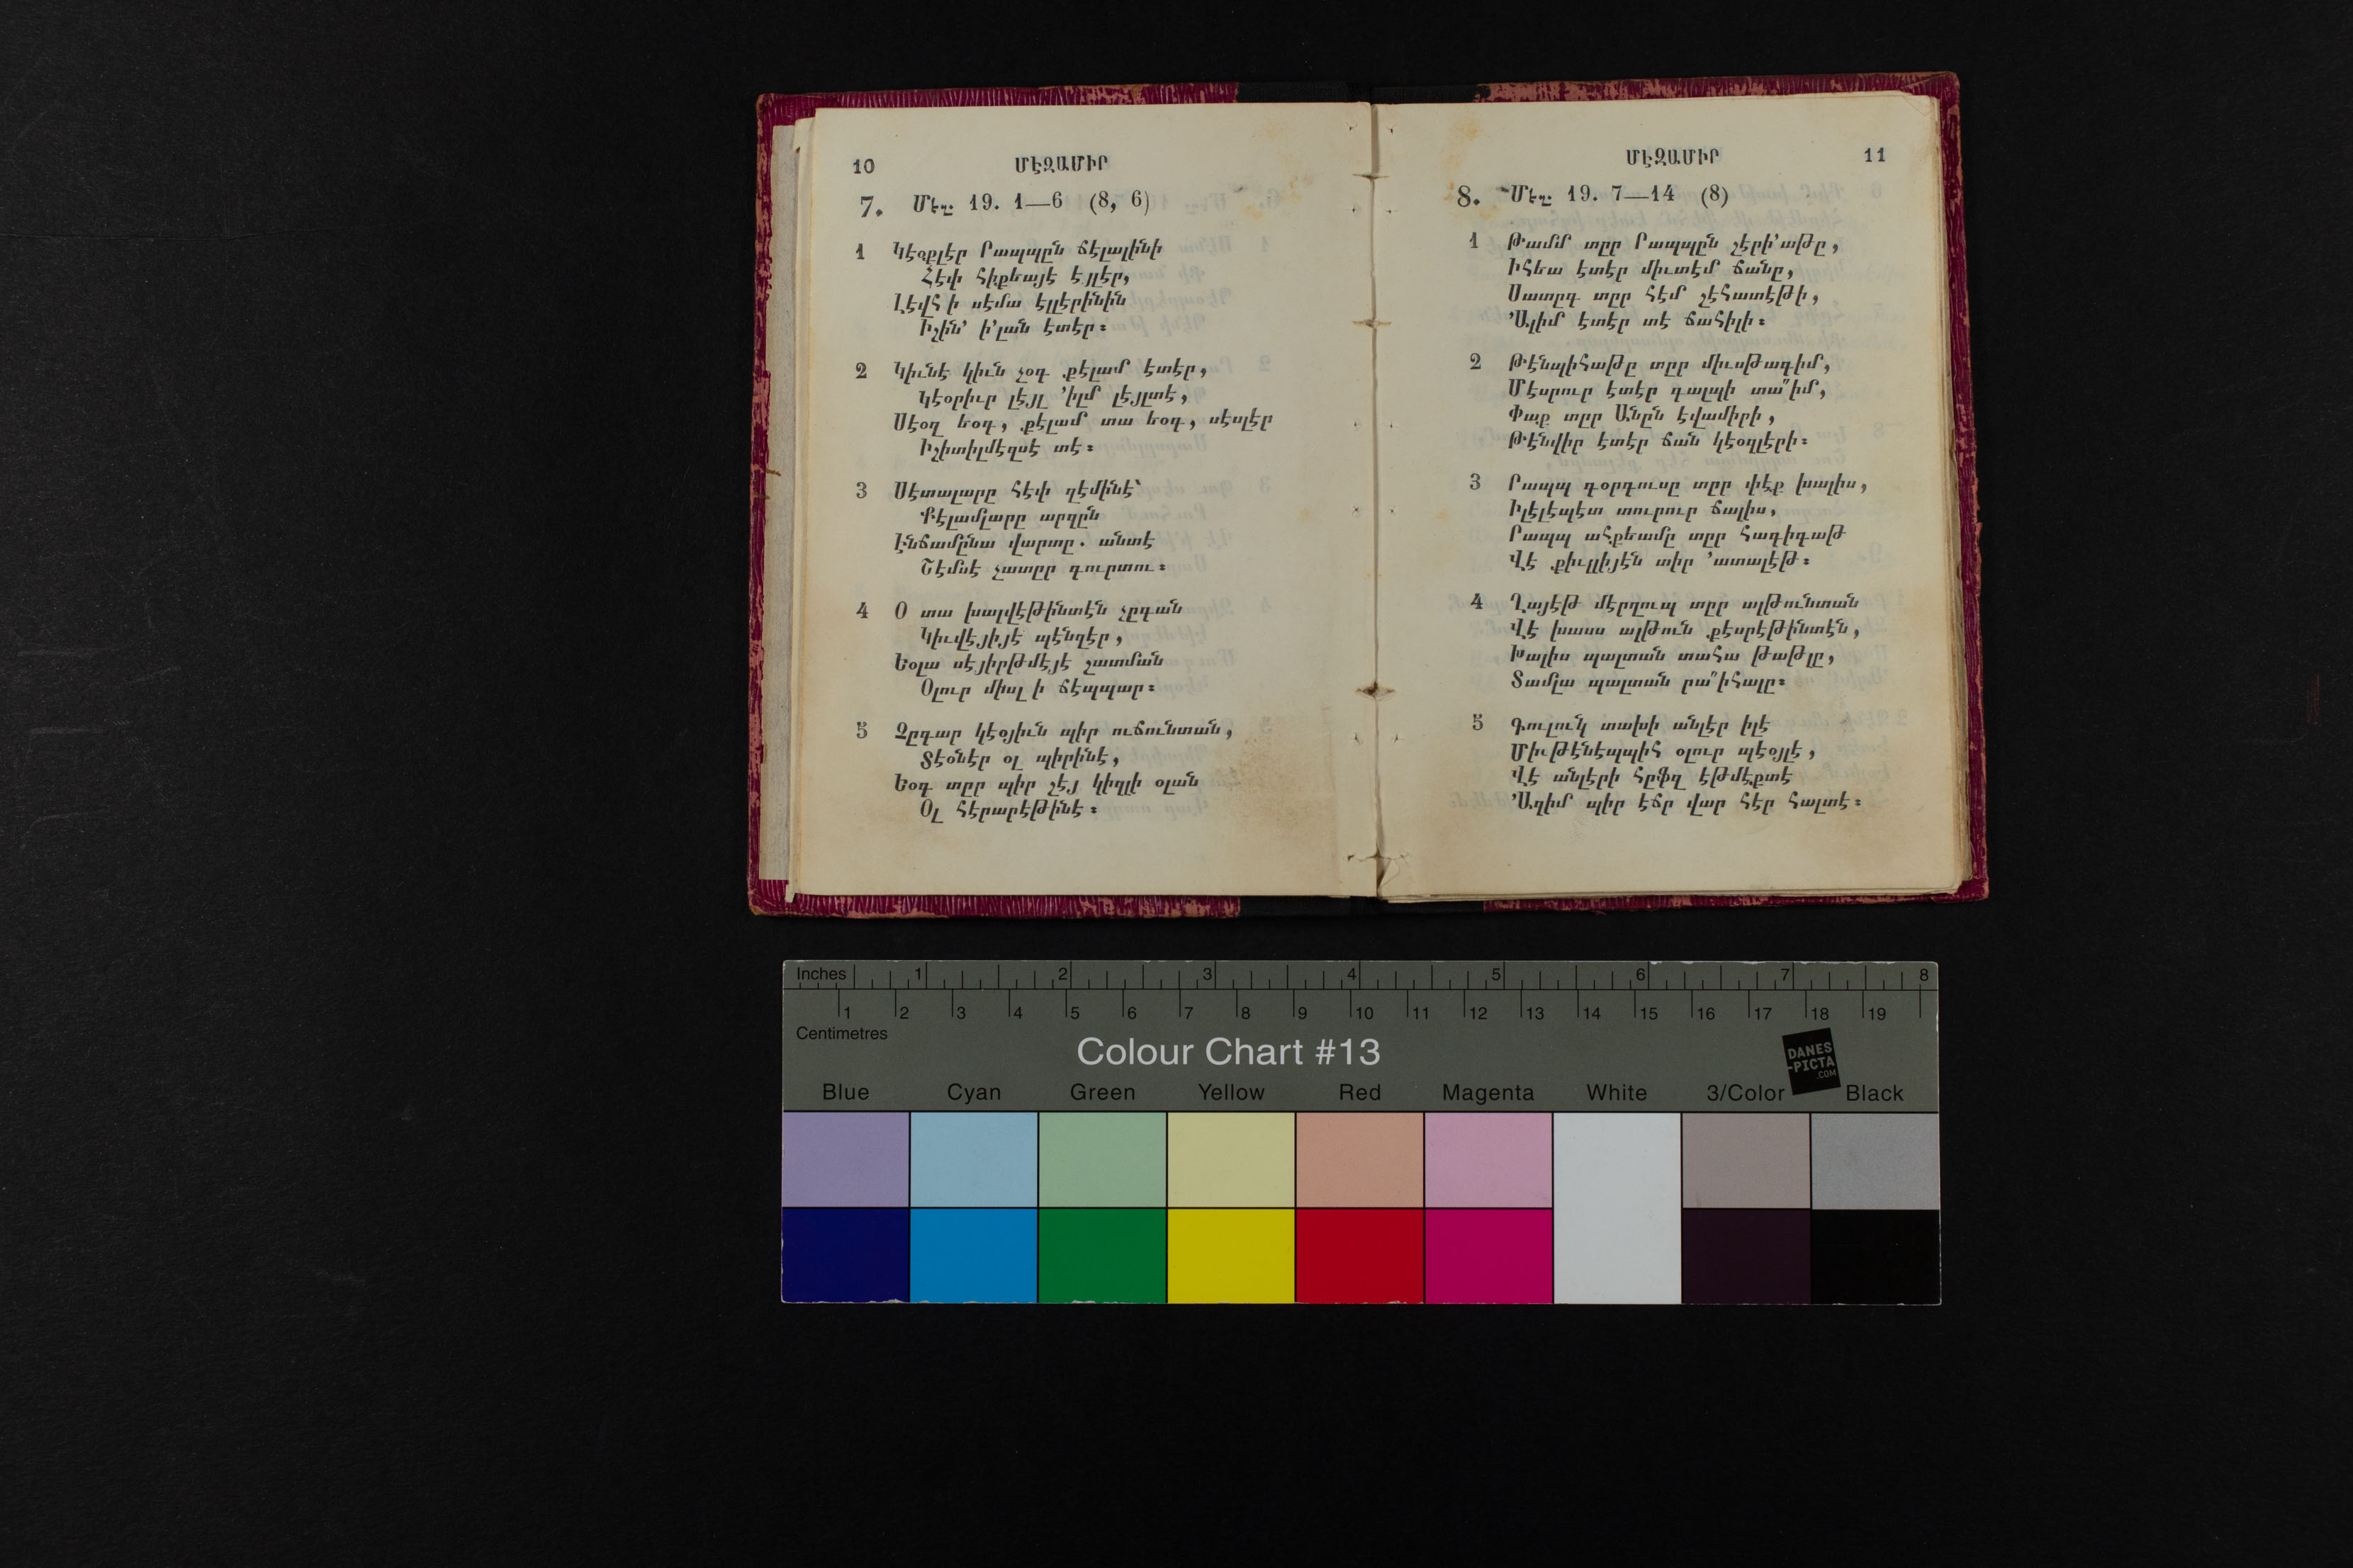 10 ՄԷԶԱՄԻՐ
7. Մէզ. 19. 1—6 (8, 6)
1 Կէօքլէր Րապպըն ճէլալինի
Հէփ հիքեայէ էյլէր,
Լէվհ ի սէմա էլլէրինին
Իշին՚ ի՚լան էտէր։
2 Կիւնէ կիւն չօգ քէլամ էտէր,
Կէօրիւր լէյլ ՚իլմ լէյլտէ,
Սէօզ եօգ, քէլամ տա եօգ, սէսլէր
Իշիտիլմէզսէ տէ։
3 Սէտալարը հէփ զէմինէ՝
Քէլամլարը արզըն
Էնճամընա վարտը. անտէ
Շէմսէ չատըր գուրտու։
4 Օ տա խալվէթինտէն չըգան
Կիւվէյիյէ պէնզէր,
Եօլա սէյիրթմէյէ շատման
Օլուր միսլ ի ճէպպար։
5 Չըգար կէօյիւն պիր ուճունտան,
Տէօնէր օլ պիրինէ,
Եօգ տըր պիր շէյ կիզլի օլան
Օլ հէրարէթինէ։
ՄԷԶԱՄԻՐ 11
8. Մէզ. 19. 7—14 (8)
1 Թամմ տըր Րապպըն շէրի՚աթը,
Իհեա էտէր միւտէմ ճանը,
Սատըգ տըր հէմ շէհատէթի,
՚Ալիմ էտէր տէ ճահիլի։
2 Թէնպիհաթը տըր միւսթագիմ,
Մէսրուր էտէր գալպի տա՞իմ,
Փաք տըր Անըն էվամիրի,
Թէնվիր էտէր ճան կէօզլէրի։
3 Րապպ գօրգուսը տըր փէք խալիս,
Իլէլէպէտ տուրուր ճալիս,
Րապպ ահքեամը տըր հագիգաթ
Վէ քիւլլիյէն տիր ՚ատալէթ։
4 Ղայէթ մէրղուպ տըր ալթունտան
Վէ խասս ալթուն քէսրէթինտէն,
Խալիս պալտան տահա թաթլը,
Տամլա պալտան րա՞իհալը։
5 Գուլունկ տախի անլէր իլէ
Միւթէնէպպիհ օլուր պէօյլէ,
Վէ անլէրի հըֆզ էթմէքտէ
՚Ազիմ պիր էճր վար հէր հալտէ։
Inches 1 2 3 4 5 6 7 8
1 2 3 4 5 6 7 8 9 10 11 12 13 14 15 16 17 18 19
Centimetres
Colour Chart #13
DANES
-PICTA
.COM
Blue Cyan Green Yellow Red Magenta White 3/Color Black